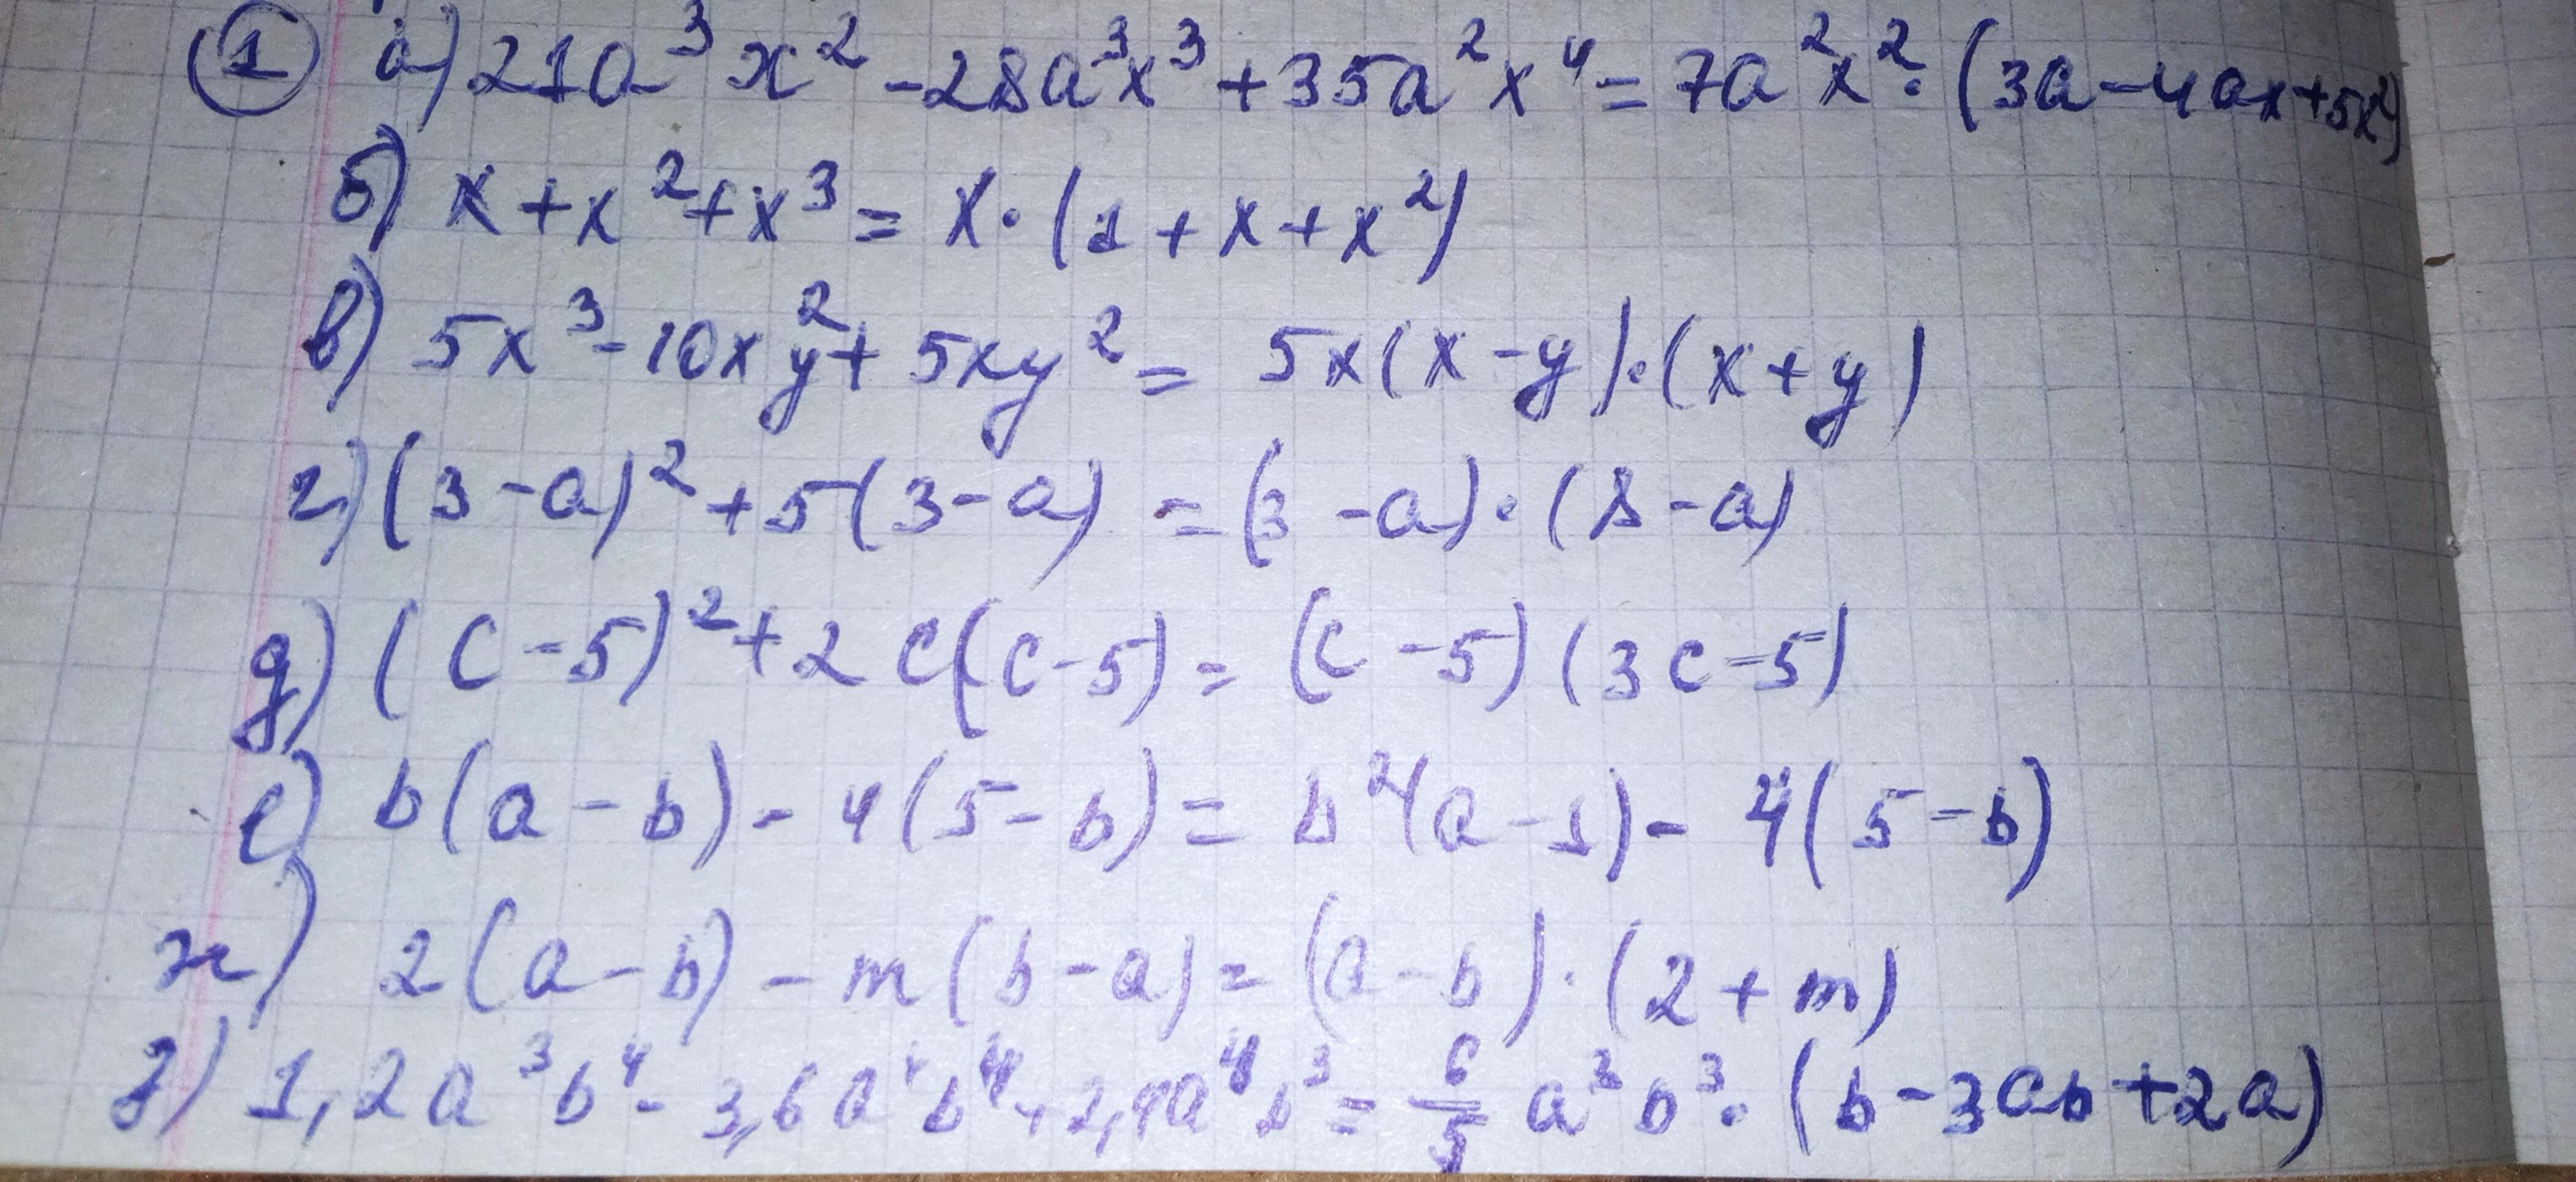 ① а) 21a³x² - 28a³x³ + 35a²x⁴ = 7a²x² · (3a - 4ax + 5x²)
б) x + x² + x³ = x · (1 + x + x²)
в) 5x³ - 10xy² + 5xy² = 5x(x - y) · (x + y)
г) (3 - a)² + 5(3 - a) = (3 - a) · (8 - a)
д) (c - 5)² + 2c(c - 5) = (c - 5)(3c - 5)
е) b(a - b) - 4(5 - b) = b²(a - 1) - 4(5 - b)
ж) 2(a - b) - m(b - a) = (a - b) · (2 + m)
з) 1,2a³b⁴ - 3,6a⁴b⁴ + 2,4a⁴b³ = 6/5 a³b³ · (b - 3ab + 2a)